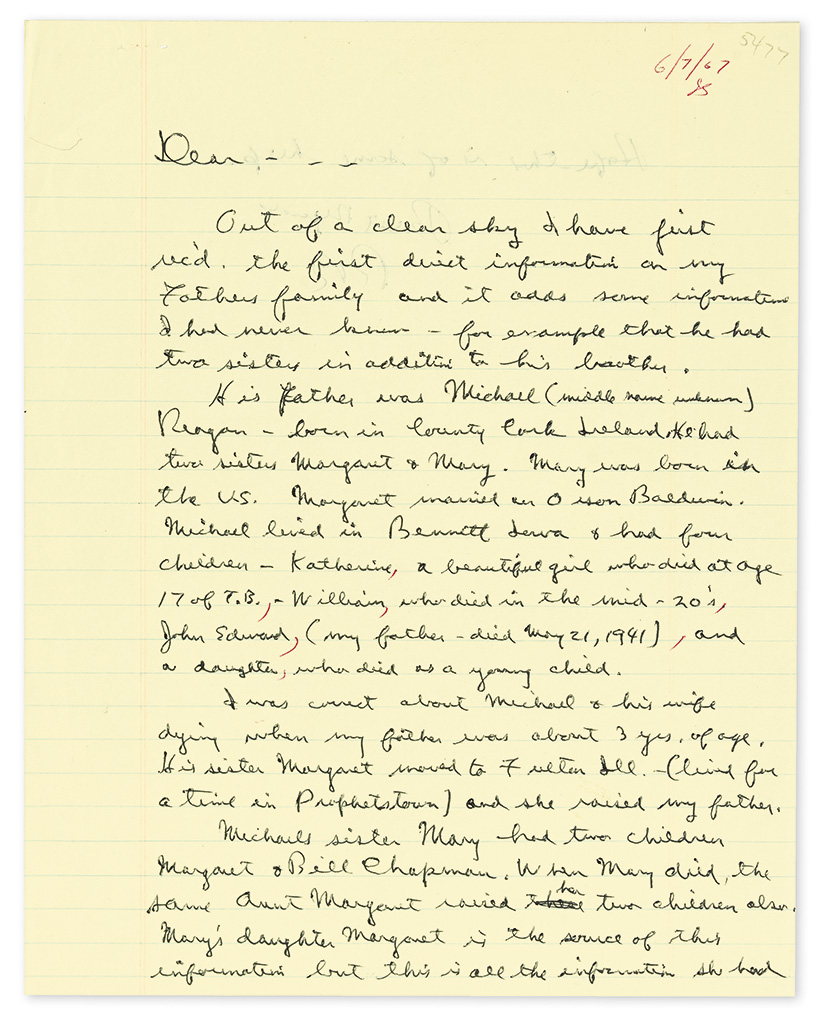 5477
6/7/67
Dear - - -
Out of a clear sky I have first
rec'd. the first direct information on my
Fathers family and it adds some information
I had never known - for example that he had
two sisters in addition to his brother.
His father was Michael (middle name unknown)
Reagan - born in County Cork Ireland. He had
two sisters Margaret & Mary. Mary was born in
the U.S. Margaret married an Orson Baldwin.
Michael lived in Bennett Iowa & had four
children - Katherine, a beautiful girl who died at age
17 of T.B., - William, who died in the mid - 20's,
John Edward, (my father - died May 21, 1941) , and
a daughter, who died as a young child.
I was correct about Michael & his wife
dying when my father was about 3 yrs. of age.
His sister Margaret moved to Fulton Ill. - (lived for
a time in Prophetstown) and she raised my father.
Michaels sister Mary had two children
Margaret & Bill Chapman. When Mary died, the
same Aunt Margaret raised her two children also.
Mary's daughter Margaret is the source of this
information but this is all the information she had